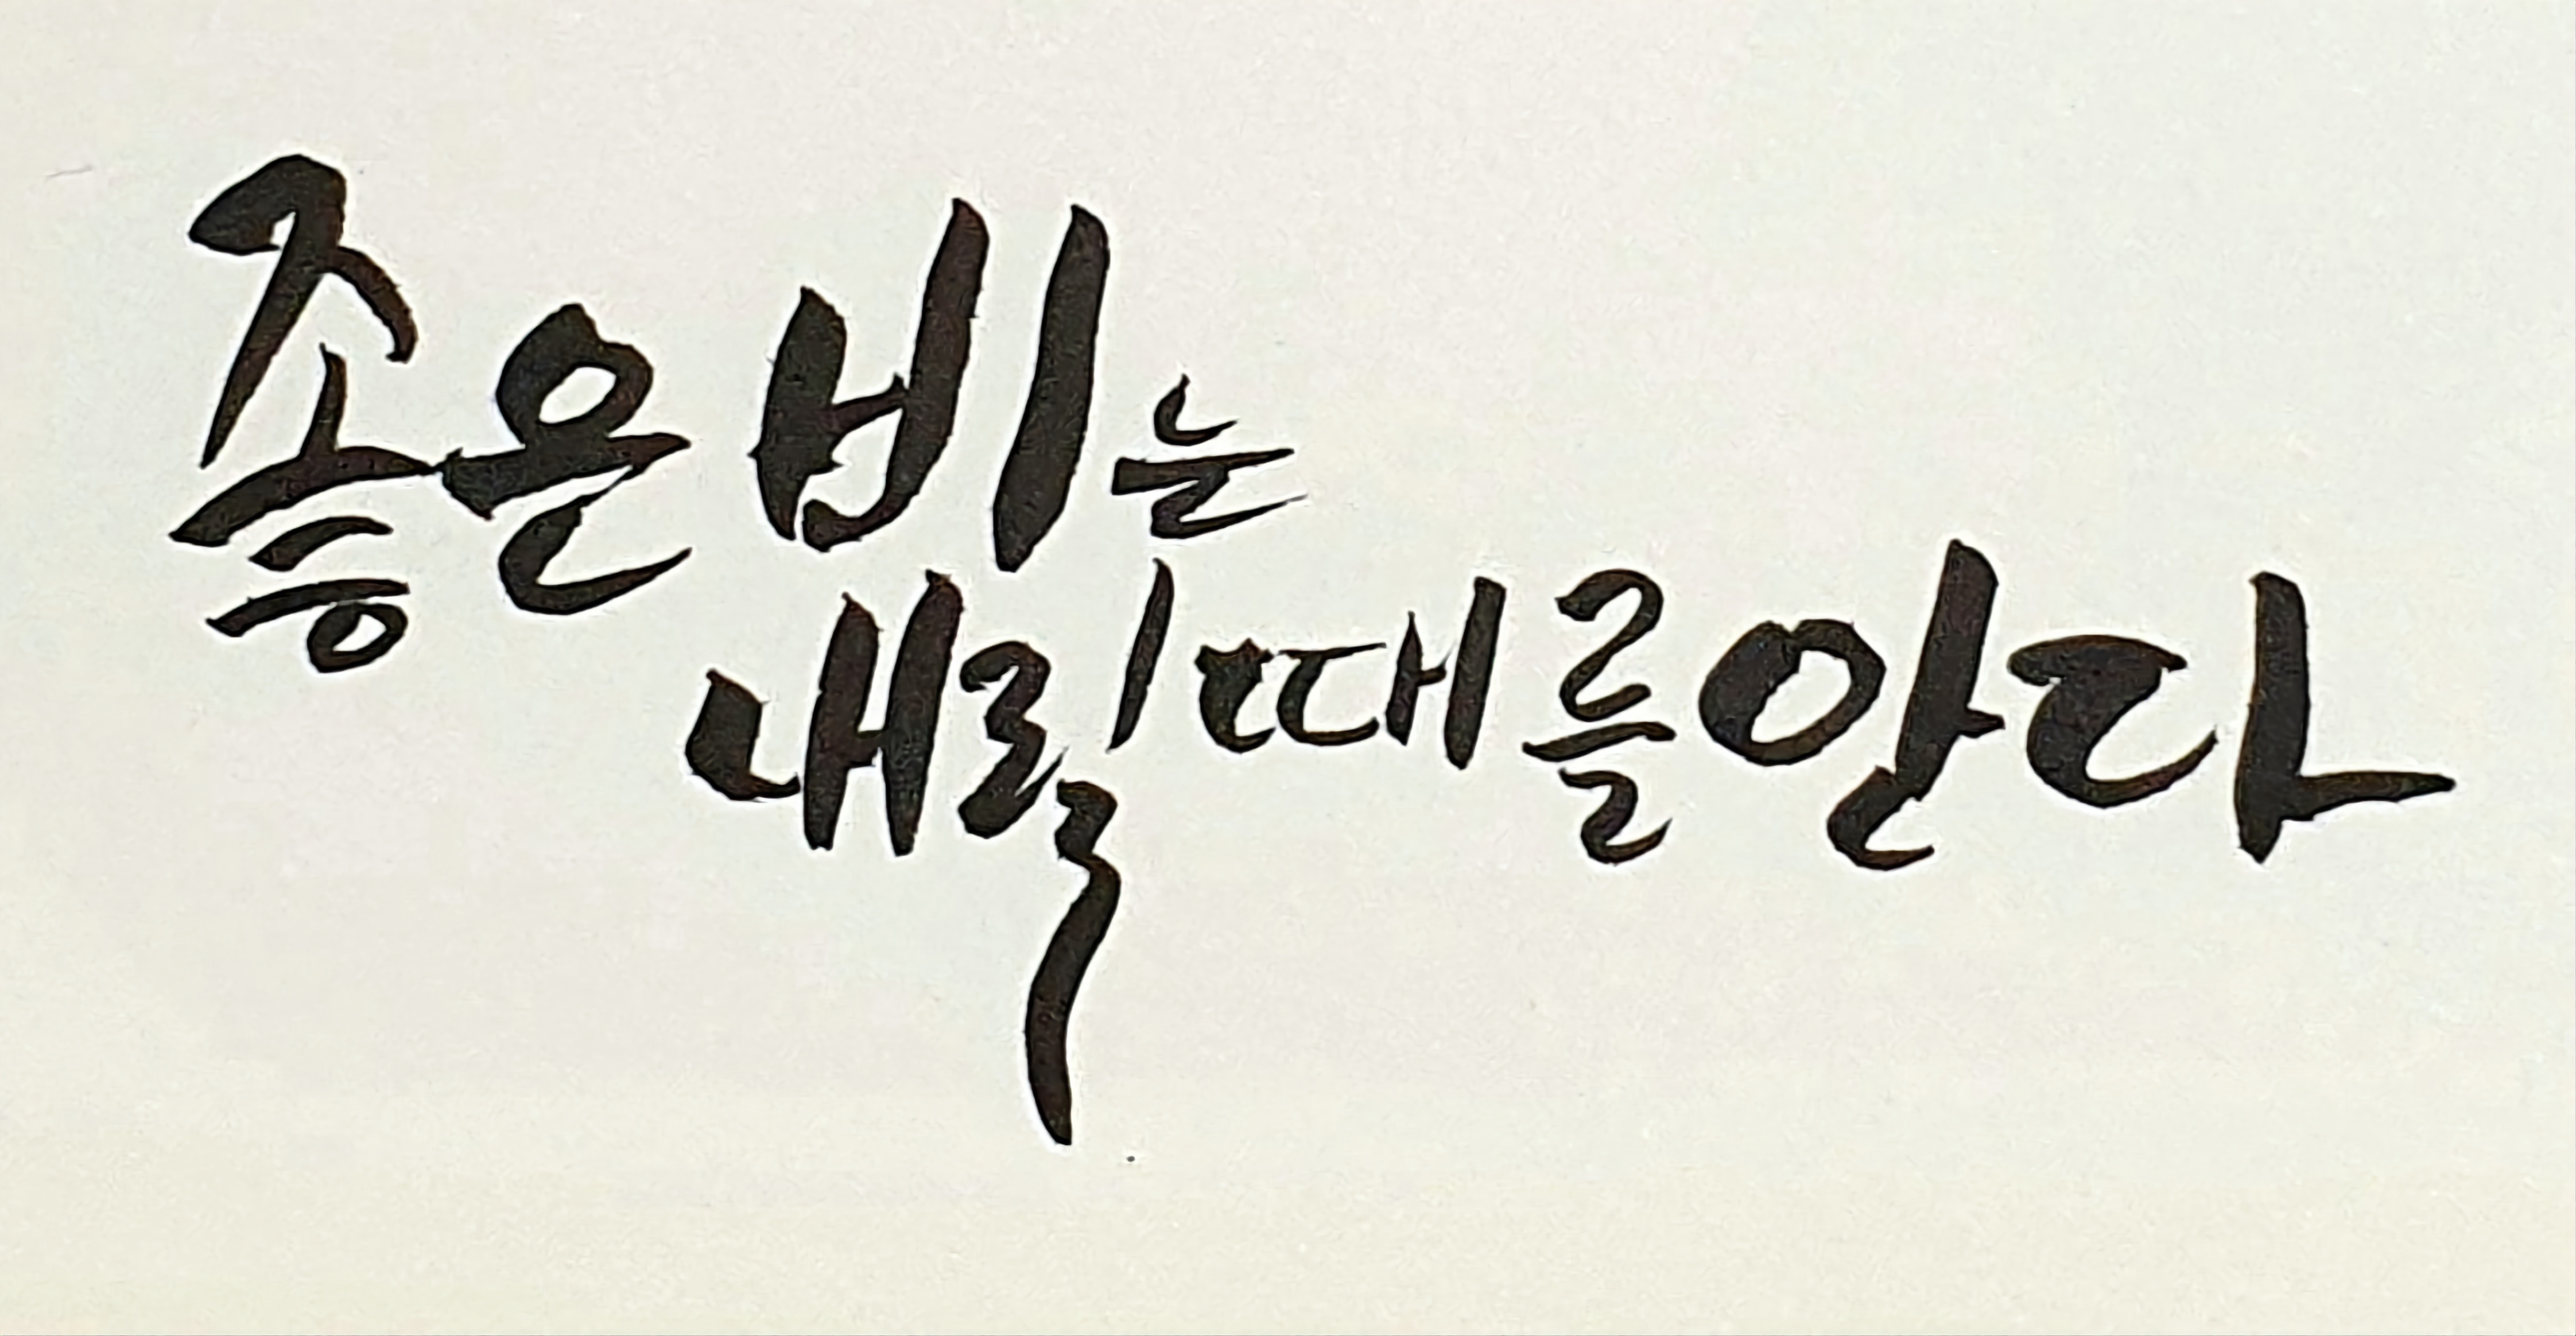 좋은 비는
내릴 때를 안다